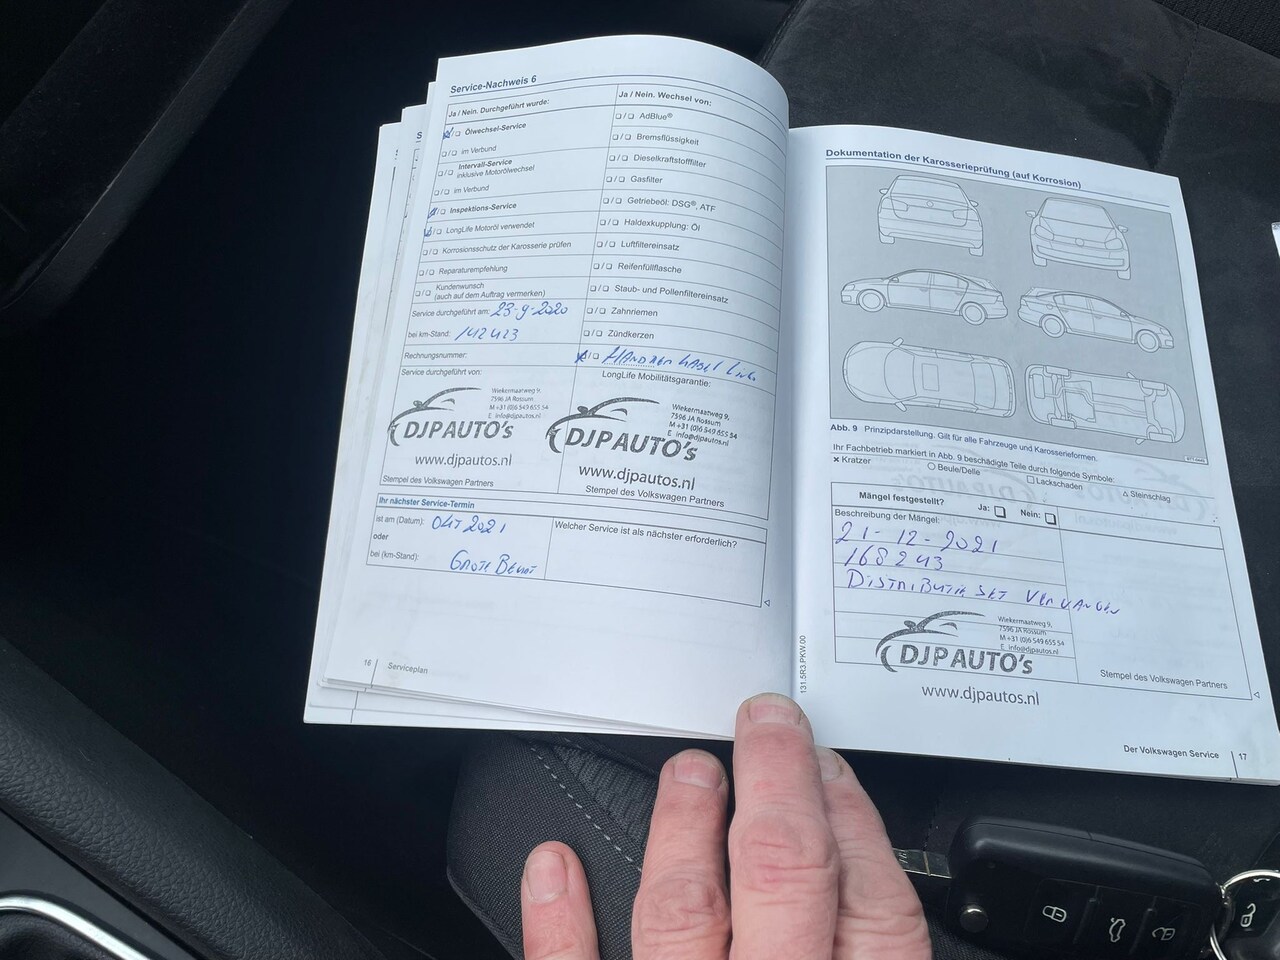 Service-Nachweis 6
Ja / Nein. Durchgeführt wurde:
Ölwechsel-Service
im Verbund
Intervall-Service
inklusive Motorölwechsel
im Verbund
Inspektions-Service
LongLife Motoröl verwendet
Korrosionsschutz der Karosserie prüfen
Reparaturempfehlung
Kundenwunsch
(auch auf dem Auftrag vermerken)
Service durchgeführt am: 23-9-2020
bei km-Stand: 142423
Rechnungsnummer:
Service durchgeführt von:
Wiekermaatweg 9,
7596 JA Rossum
M +31 (0)6 549 655 54
E info@djpautos.nl
DJPAUTO's
www.djpautos.nl
Stempel des Volkswagen Partners
Ja / Nein. Wechsel von:
AdBlue®
Bremsflüssigkeit
Dieselkraftstofffilter
Gasfilter
Getriebeöl: DSG®, ATF
Haldexkupplung: Öl
Luftfiltereinsatz
Reifenfüllflasche
Staub- und Pollenfiltereinsatz
Zahnriemen
Zündkerzen
LongLife Mobilitätsgarantie:
Wiekermaatweg 9,
7596 JA Rossum
M +31 (0)6 549 655 54
E info@djpautos.nl
DJPAUTO's
www.djpautos.nl
Stempel des Volkswagen Partners
Ihr nächster Service-Termin
ist am (Datum): OKT 2021
oder
bei (km-Stand): GROTE BEURT
Welcher Service ist als nächster erforderlich?
16 Serviceplan
131.5R3.PKW.00
Dokumentation der Karosserieprüfung (auf Korrosion)
Abb. 9 Prinzipdarstellung. Gilt für alle Fahrzeuge und Karosserieformen.
Ihr Fachbetrieb markiert in Abb. 9 beschädigte Teile durch folgende Symbole:
× Kratzer
Beule/Delle
Lackschaden
Steinschlag
Mängel festgestellt? Ja: Nein:
Beschreibung der Mängel:
21-12-2021
168243
DISTRIBUTIE SET VERVANGEN
Wiekermaatweg 9,
7596 JA Rossum
M +31 (0)6 549 655 54
E info@djpautos.nl
DJPAUTO's
www.djpautos.nl
Stempel des Volkswagen Partners
Der Volkswagen Service 17